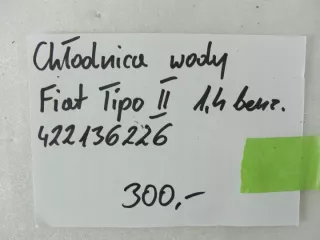 Chłodnica wody
Fiat Tipo II 1,4 benz.
422136226
300,-